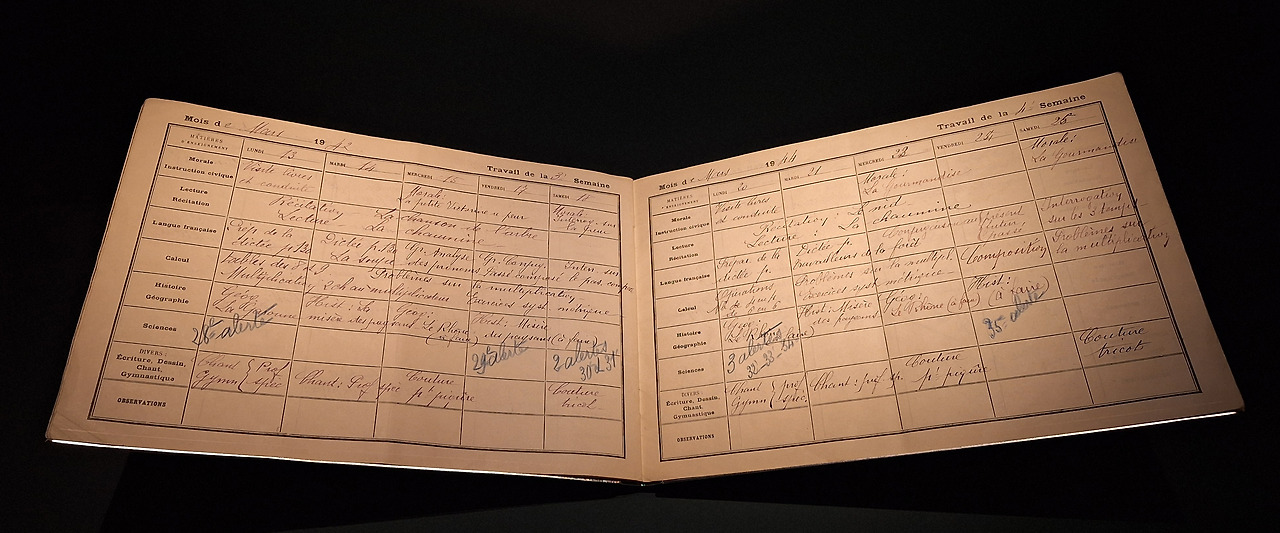 Mois de Mars 19 42
Travail de la 3e Semaine
MATIÈRES D'ENSEIGNEMENT
LUNDI 13 MARDI 14 MERCREDI 15 VENDREDI 17 SAMEDI 18
Morale
Instruction civique
Visite livres
et conduite
Morale
La petite pour
Morale:
sur
Lecture
Récitation
Récitation La chanson de l'arbre
Lecture La chaumine
Langue française
Prép. de la
dictée p.
Dictée p.
La
Gr. Analyse
des prénoms
Gr. Conjug.
Passé composé
Inter. sur
le pas. comp.
Calcul
Tables des 8 et 9
Multiplication 2 ch. au multiplicateur
Problèmes sur la multiplication
Exercices syst. métrique
Histoire
Géographie
Géog.
La Garonne
Hist: La
misère des paysans
Géog:
Le Rhône
(à faire)
Hist: Misère
des paysans (à faire)
Sciences
28e alerte
29e alerte
2 alertes
30 et 31
DIVERS:
Écriture, Dessin,
Chant,
Gymnastique
Chant { Prof
Gymn { spéc
Chant: Prof spéc
Couture
p
Couture
tricot
OBSERVATIONS
Mois de Mars 19 44
Travail de la 4e Semaine
MATIÈRES D'ENSEIGNEMENT
LUNDI 20 MARDI 21 MERCREDI 22 VENDREDI 24 SAMEDI 25
Morale
Instruction civique
Visite livres
et conduite
Morale:
La Gourmandise
Morale:
La Gourmandise
Lecture
Récitation
Récitation: Le nid
Lecture: La chaumine
Langue française
Prépar. de la
dictée p.
Dictée p.
Travailleurs de la forêt
Conjugaison
présent
futur
passé
Interrogation
sur les 3 temps
Calcul
Opérations
Problèmes sur la multipl.
Exercices syst. métrique
Composition
Problèmes sur
la multiplication
Histoire
Géographie
Géog:
Le Rhône
(à faire)
Hist: Misère
des paysans
Géog:
Le Rhône (à faire)
Hist:
(à faire)
Sciences
3 alertes
32-33-34
35e alerte
DIVERS:
Écriture, Dessin,
Chant,
Gymnastique
Chant { prof
Gymn { spéc
Chant: prof sp.
Couture
p
Couture
tricot
OBSERVATIONS